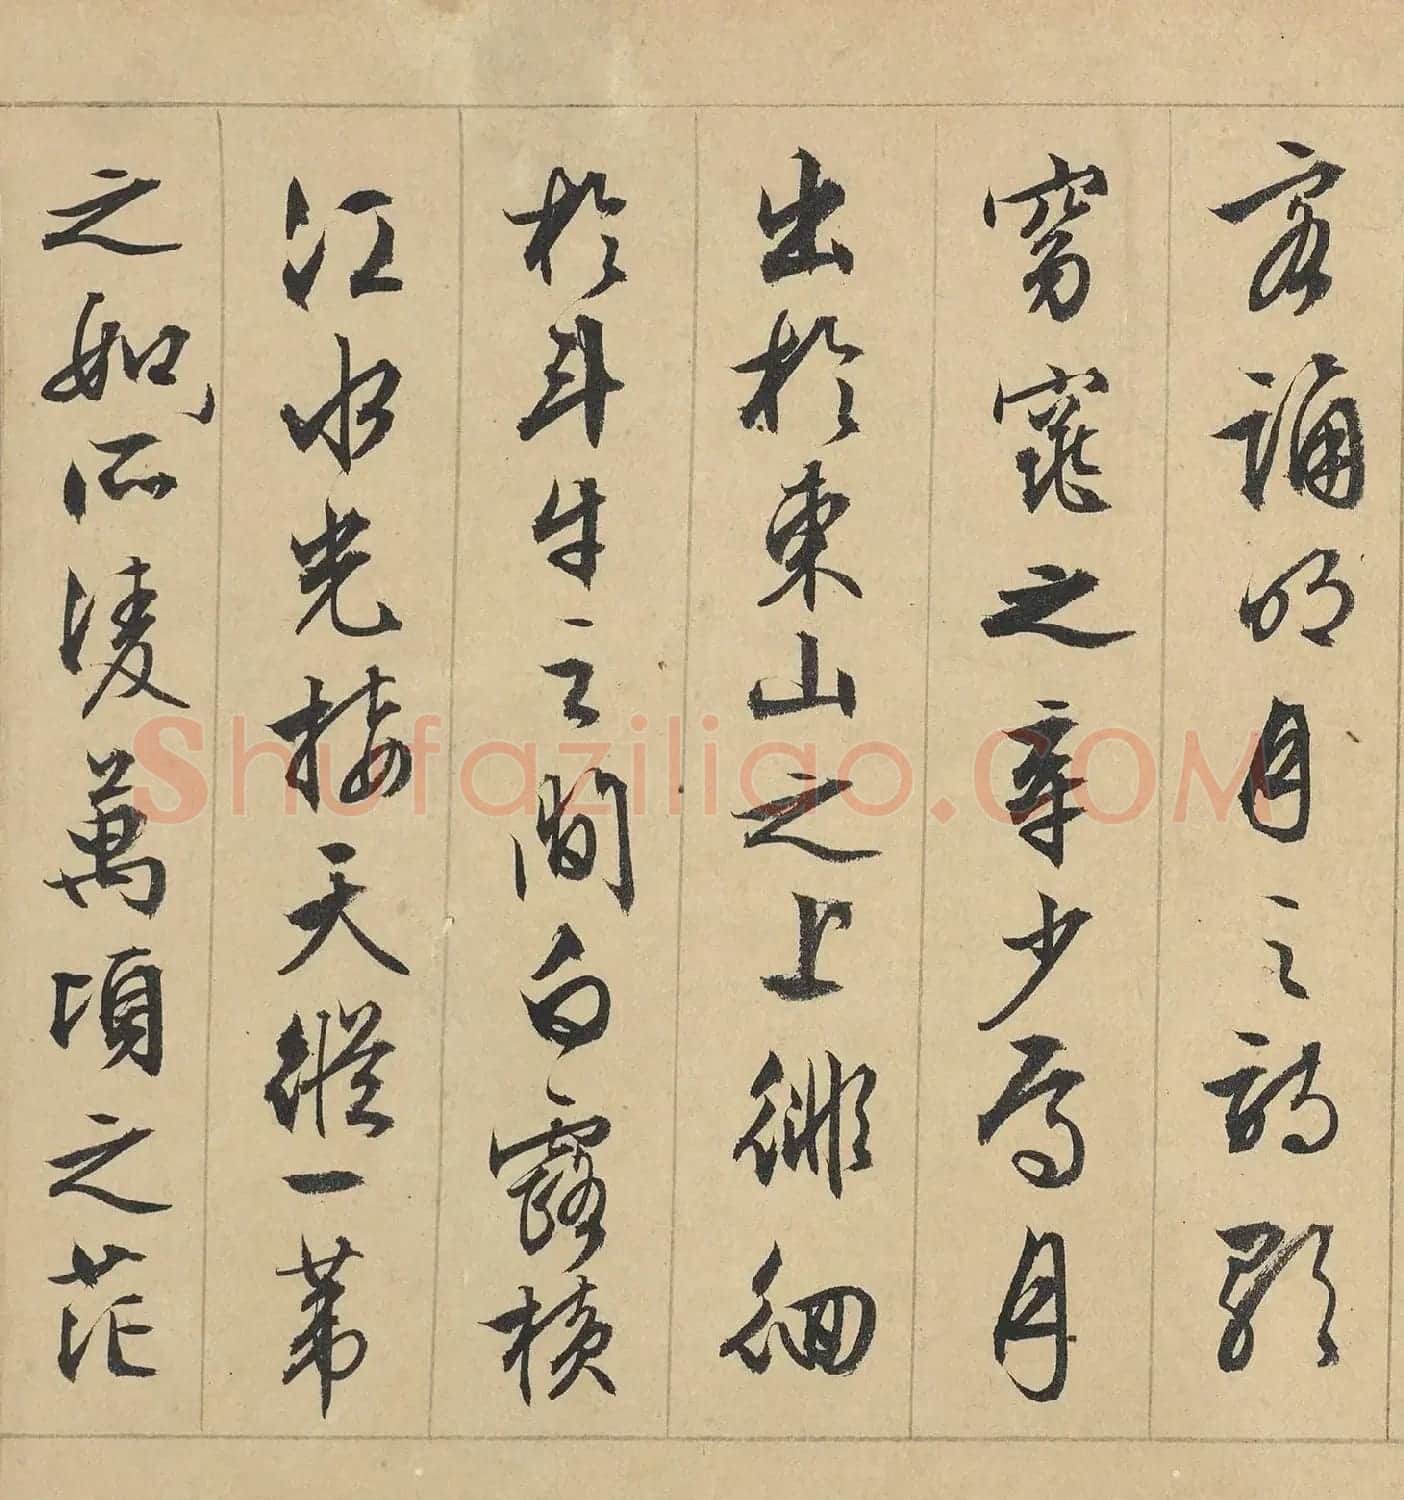 客誦明月之詩歌
窈窕之章少焉月
出於東山之上徘徊
於斗牛之間白露橫
江水光接天縱一葦
之如而凌萬頃之茫
Shufaziligo.COM